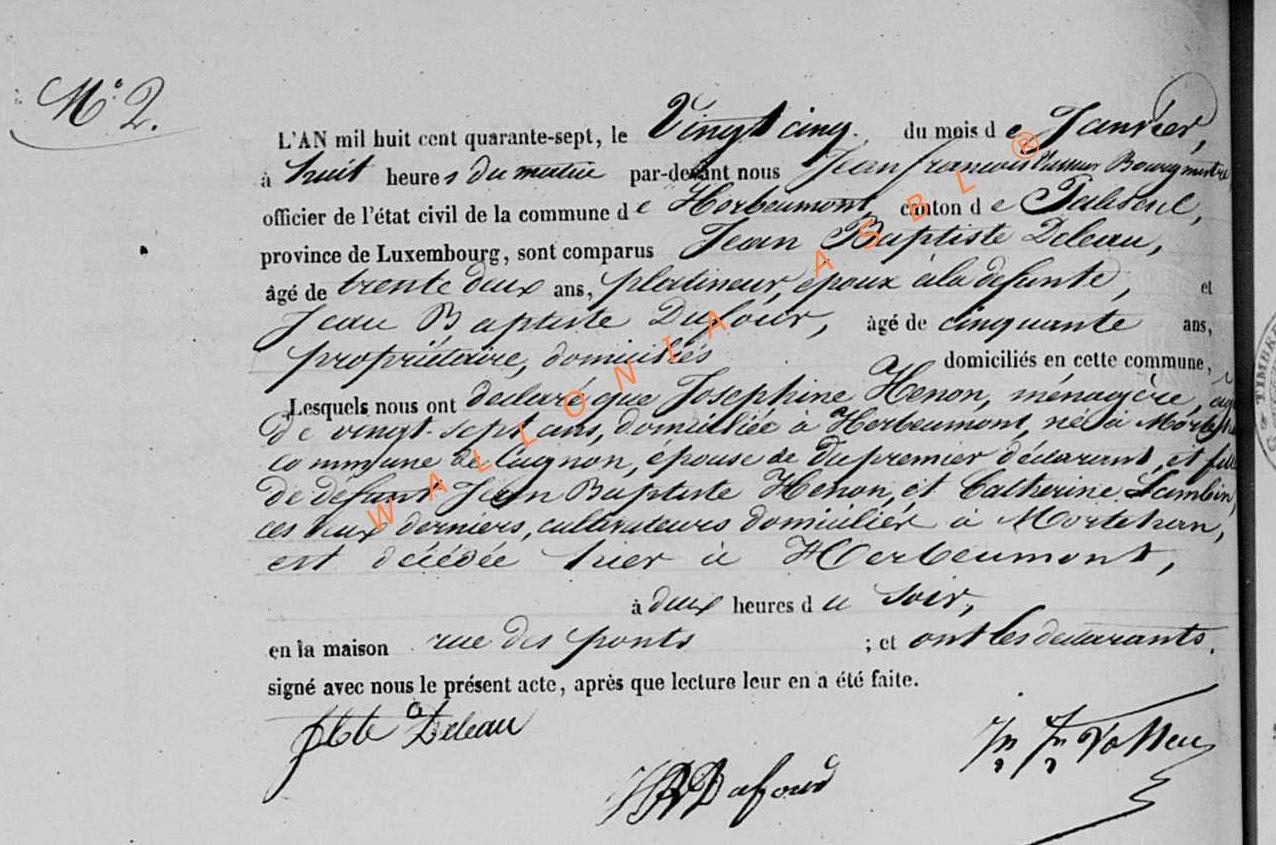 N° 2.
L'AN mil huit cent quarante-sept, le Vingt cinq. du mois de Janvier,
à huit heures du matin par-devant nous Jean françois Bourgmestre
officier de l'état civil de la commune de Herbeumont, canton de Paliseul,
province de Luxembourg, sont comparus Jean Baptiste Deleau,
âgé de trente deux ans, platineur, époux à la défunte, et
Jean Baptiste Dufour, âgé de cinquante ans,
propriétaire, domiciliés domiciliés en cette commune,
Lesquels nous ont déclaré que Josephine Henon, ménagère, agé
de vingt-sept ans, domiciliée à Herbeumont, née à Mortehan
commune de Cugnon, épouse de du premier déclarant, et fille
de défunt Jean Baptiste Henon, et Catherine Lambin,
ces deux derniers, cultivateurs domiciliés à Mortehan,
est décédée hier à Herbeumont,
à deux heures du soir,
en la maison rue des ponts ; et ont les déclarants.
signé avec nous le présent acte, après que lecture leur en a été faite.
Deleau
JB Dufour
WALLONIA ASBL ®
TIMBRE